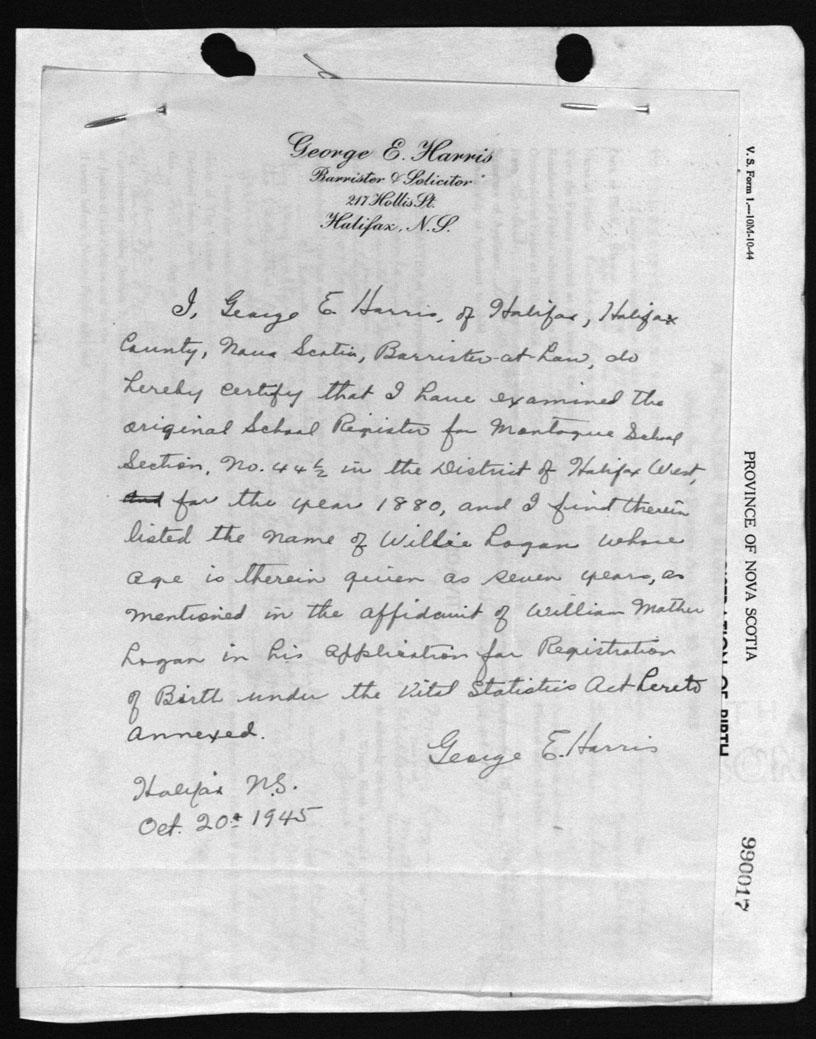 George E. Harris
Barrister & Solicitor
217 Hollis St.
Halifax, N.S.
I, George E. Harris, of Halifax, Halifax
County, Nova Scotia, Barrister-at-Law, do
hereby certify that I have examined the
original School Register for Montague School
Section, No. 44½ in the District of Halifax West,
and for the year 1880, and I find therein
listed the name of Willie Logan whose
age is therein given as seven years, as
mentioned in the affidavit of William Mather
Logan in his Application for Registration
of Birth under the Vital Statistics Act hereto
annexed.
George E. Harris
Halifax N.S.
Oct. 20th 1945
V. S. Form 1.—10M-10-44
PROVINCE OF NOVA SCOTIA
OF BIRTH
990017